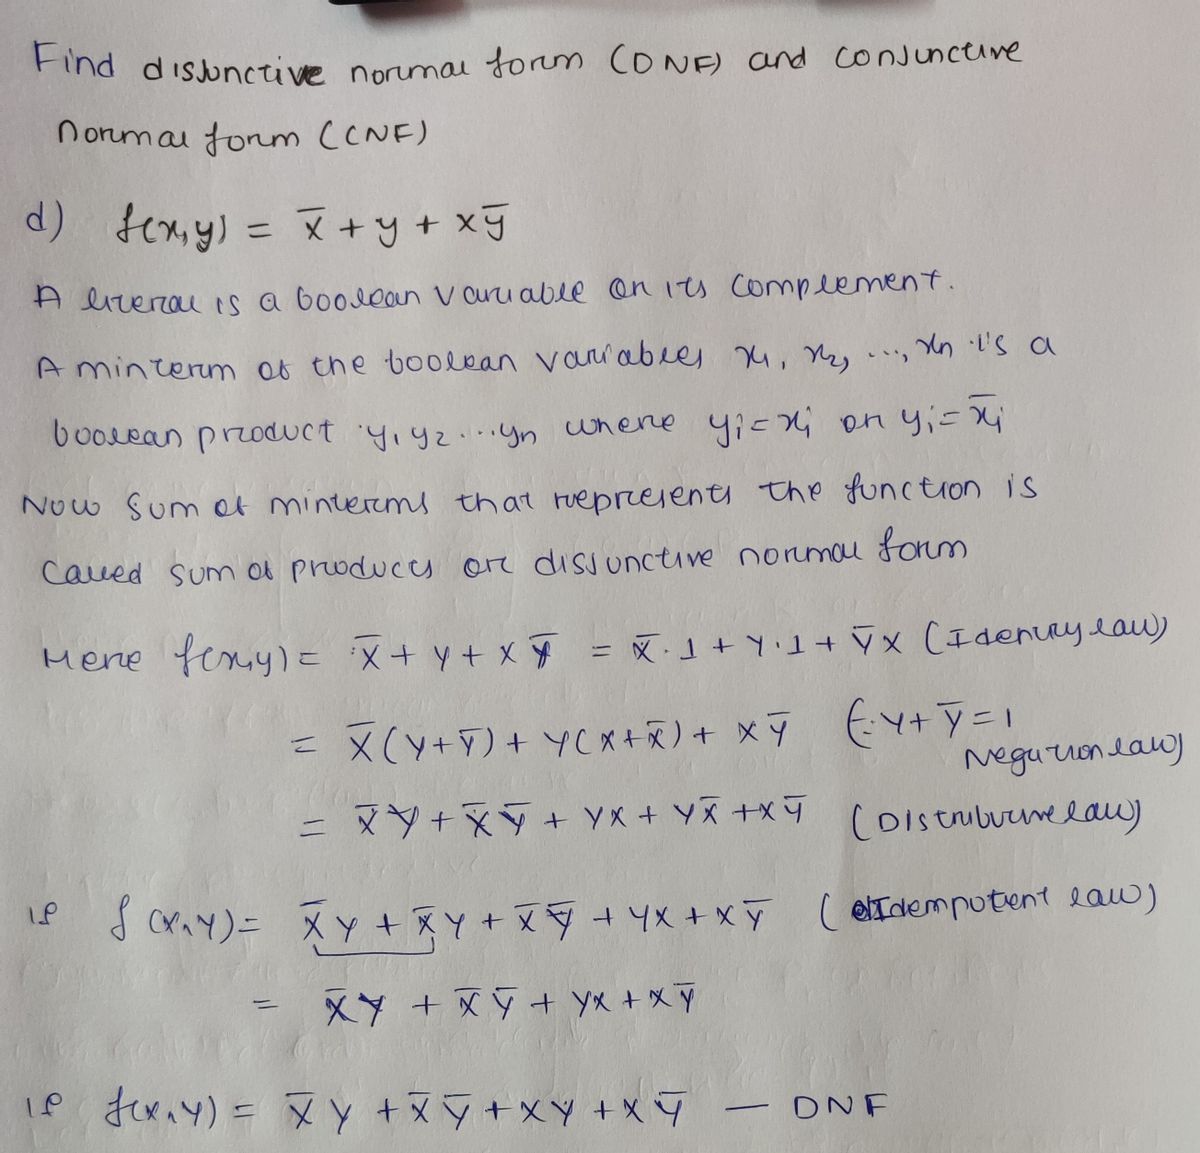 Find disjunctive normal form (DNF) and conjunctive
normal form (CNF)
d) f(x,y) = x̅ + y + xy̅
A literal is a boolean variable or its complement.
A minterm of the boolean variables x₁, x₂, ..., xₙ is a
boolean product y₁y₂...yₙ where yᵢ=xᵢ or yᵢ=x̅ᵢ
Now sum of minterms that represents the function is
called sum of products or disjunctive normal form
Here f(x,y) = x̅ + y + xy̅ = x̅.1 + y.1 + y̅x (Identity law)
= x̅(y+y̅) + y(x+x̅) + xy̅ (∵ y+y̅=1
Negation law)
= x̅y + x̅y̅ + yx + yx̅ + xy̅ (Distributive law)
ie f(x,y) = x̅y + x̅y + x̅y̅ + yx + xy̅ (Idempotent law)
= x̅y + x̅y̅ + yx + xy̅
ie f(x,y) = x̅y + x̅y̅ + xy + xy̅ — DNF